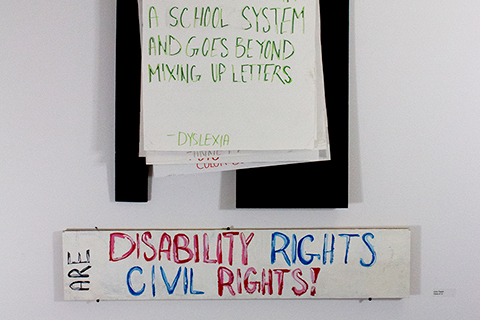 A SCHOOL SYSTEM
AND GOES BEYOND
MIXING UP LETTERS
- DYSLEXIA
DISABILITY RIGHTS
ARE
CIVIL RIGHTS!